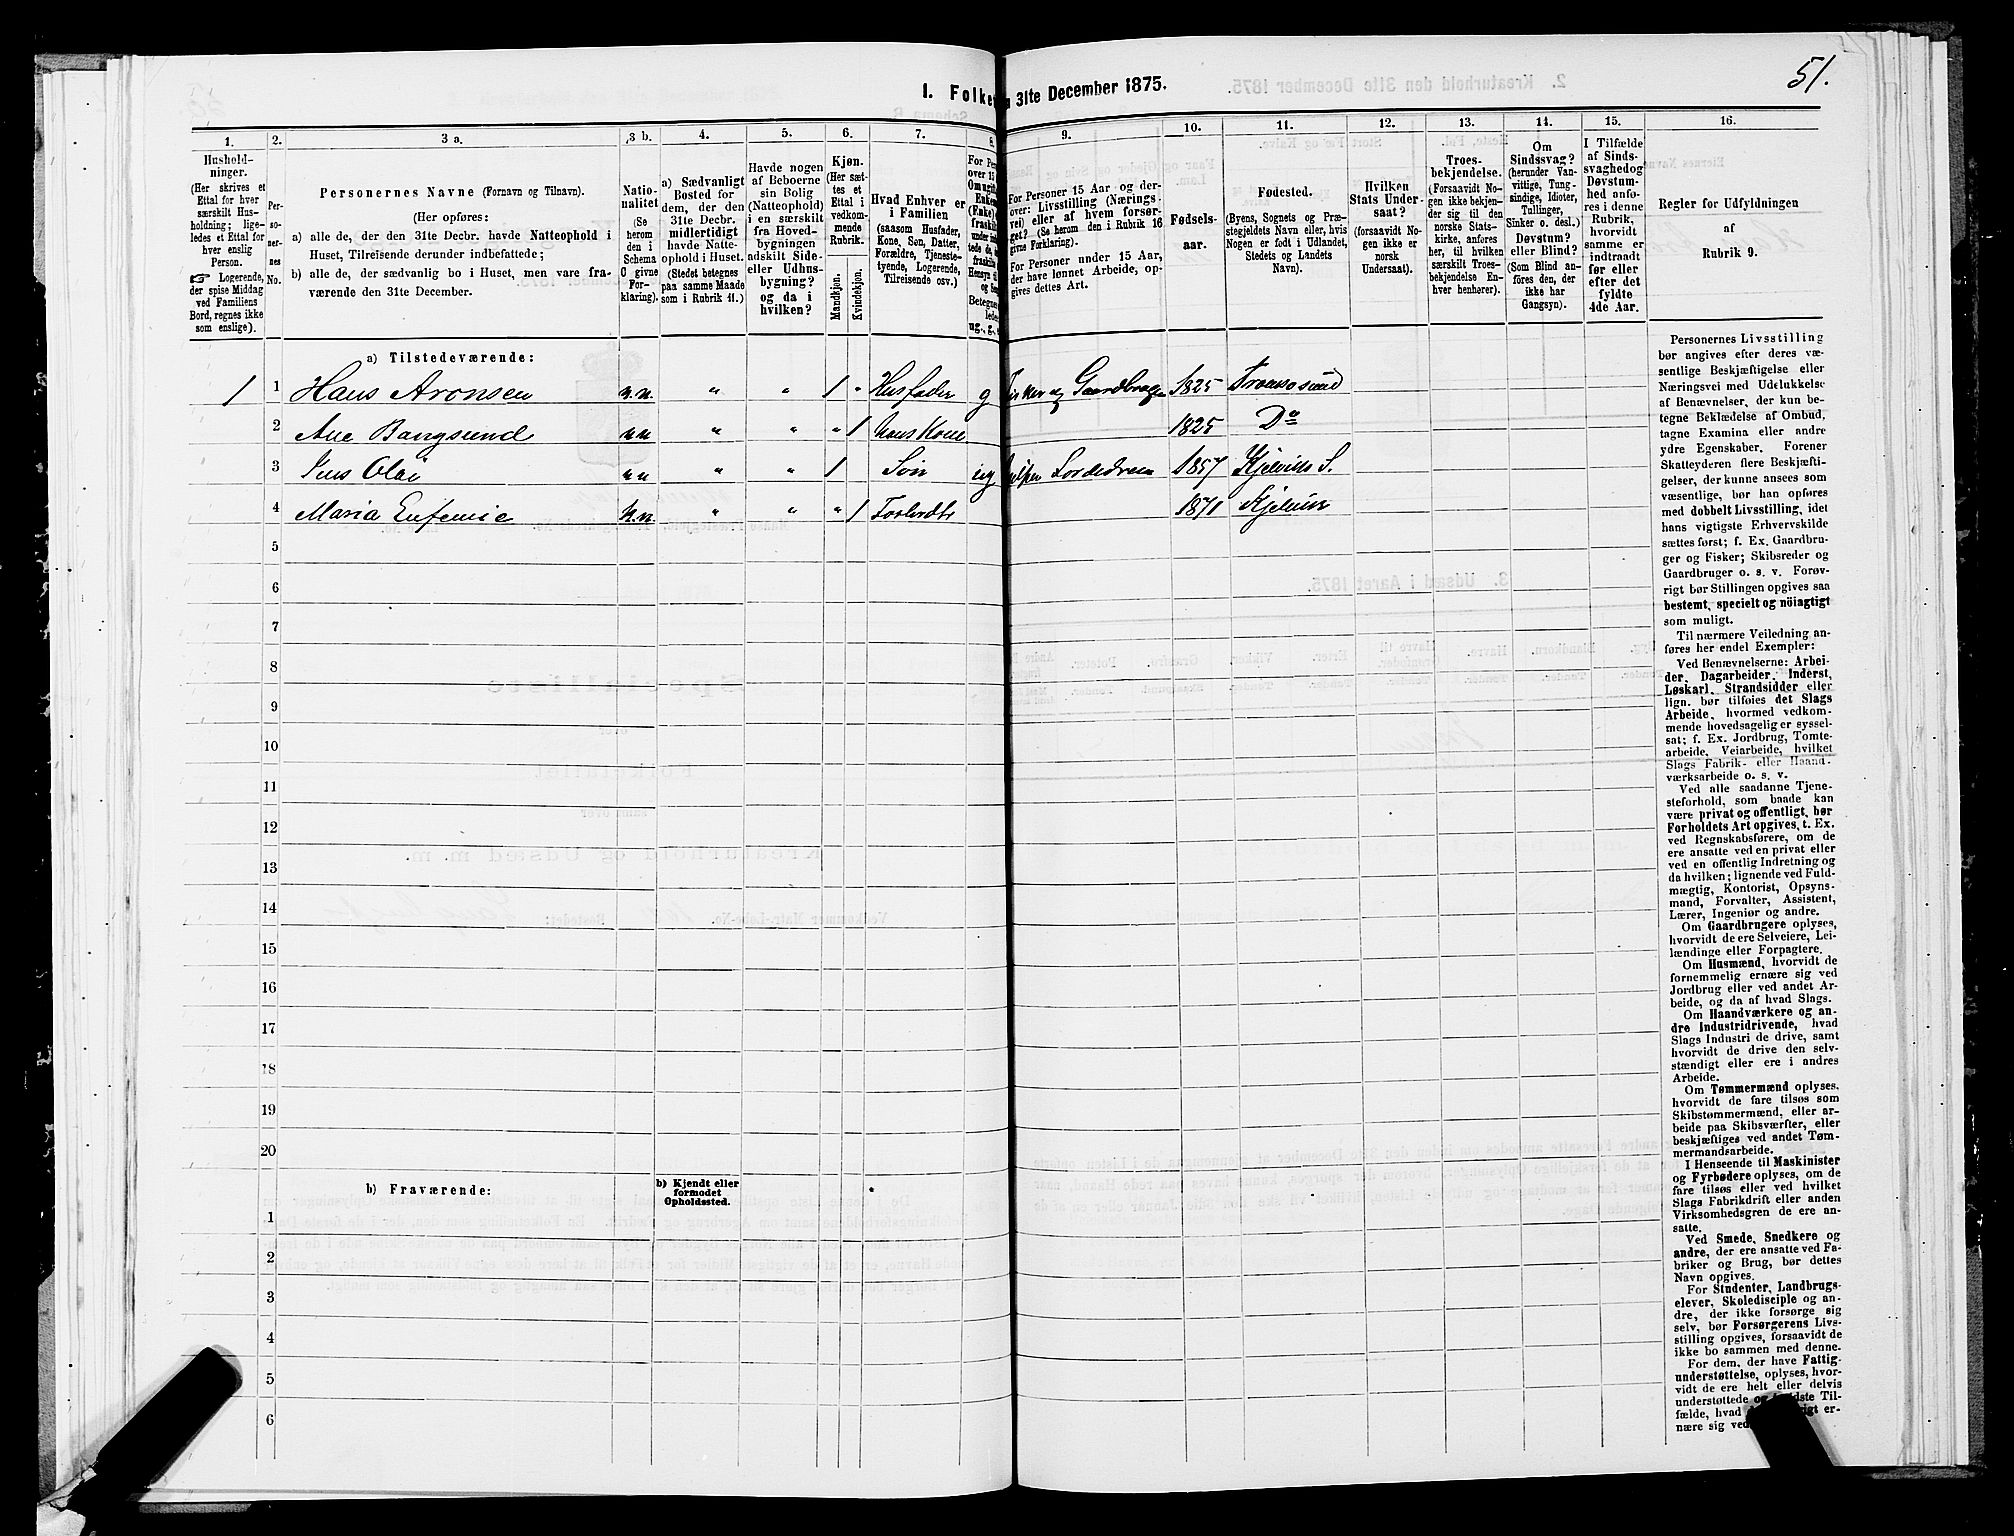 51.
I. Folke
n 31te December 1875.
1. 2. 3 a. 3 b. 4. 5. 6. 7. 8. 9. 10. 11. 12. 13. 14. 15. 16.
Hushold-
ninger.
(Her skrives et
Ettal for hver
særskilt Hus-
holdning; lige-
ledes et Ettal for
hver enslig
Person.
☞ Logerende,
der spise Middag
ved Familiens
Bord, regnes ikke
som enslige).
Per-
so-
ner-
nes
No.
Personernes Navne (Fornavn og Tilnavn).
(Her opføres:
a) alle de, der den 31te Decbr. havde Natteophold i
Huset, Tilreisende derunder indbefattede;
b) alle de, der sædvanlig bo i Huset, men vare fra-
værende den 31te December.
Natio-
nalitet
(Se
herom
den i
Schema
C givne
For-
klaring).
a) Sædvanligt
Bosted for
dem, der den
31te Decbr.
midlertidigt
havde Natte-
ophold i Huset.
(Stedet betegnes
paa samme Maade
som i Rubrik 11.)
Havde nogen
af Beboerne
sin Bolig
(Natteophold)
i en særskilt
fra Hoved-
bygningen
adskilt Side-
eller Udhus-
bygning?
og da i
hvilken?
Kjøn.
(Her sæt-
tes et
Ettal i
vedkom-
mende
Rubrik.
Mandkjøn.
Kvindekjøn.
Hvad Enhver er
i Familien
(saasom Husfader,
Kone, Søn, Datter,
Forældre, Tjeneste-
tyende, Logerende,
Tilreisende osv.)
For Personer 15 Aar og der-
over: Livsstilling (Nærings-
vei) eller af hvem forsør-
get? (Se herom den i Rubrik 16
givne Forklaring).
For Personer under 15 Aar,
der have lønnet Arbeide, op-
gives dettes Art.
Fødsels-
aar.
Fødested.
(Byens, Sognets og Præ-
stegjeldets Navn eller, hvis
Nogen er født i Udlandet,
Stedets og Landets
Navn).
Hvilken
Stats Under-
saat?
(forsaavidt No-
gen ikke er
norsk
Undersaat).
Troes-
bekjendelse.
(Forsaavidt No-
gen ikke bekjen-
der sig til den
norske Stats-
kirke, anføres
her, til hvilken
særskilt Troes-
bekjendelse En-
hver henhører).
Om
Sindssvag?
(herunder Van-
vittige, Tung-
sindige, Idioter,
Tullinger,
Sinker o. desl.)
Døvstum?
eller Blind?
(Som Blind an-
føres den, der
ikke har
Gangsyn).
I Tilfælde
af Sinds-
svaghed og
Døvstum-
hed anfø-
res i denne
Rubrik,
hvorvidt
samme er
indtraadt
før eller
efter det
fyldte
4de Aar.
Regler for Udfyldningen
af
Rubrik 9.
a) Tilstedeværende:
1 1 Hans Aronsen n.n. " " 1 " Husfader g Gaardbruger 1825 Tromsøsund
2 Ane Bangsund nn " " " 1 hans Kone 1825 Do
3 Jens Olai nn " " 1 Søn ug 1857 Kjelviks S.
4 Maria Eufemie n.n. " " " 1 1871 Kjelvik
5
6
7
8
9
10
11
12
13
14
15
16
17
18
19
20
b) Fraværende:
b) Kjendt eller
formodet
Opholdssted.
1
2
3
4
5
6
Personernes Livsstilling
bør angives efter deres væ-
sentlige Beskjæftigelse eller
Næringsvei med Udelukkelse
af Benævnelser, der kun be-
tegne Beklædelse af Ombud,
tagne Examina eller andre
ydre Egenskaber. Forener
Skatteyderen flere Beskjæfti-
gelser, der kunne ansees som
væsentlige, bør han opføres
med dobbelt Livsstilling, idet
hans vigtigste Erhvervskilde
sættes først; f. Ex. Gaardbru-
ger og Fisker; Skibsreder og
Gaardbruger o. s. v. Forøv-
rigt bør Stillingen opgives saa
bestemt, specielt og nöiagtigt
som muligt.
Til nærmere Veiledning an-
føres her endel Exempler:
Ved Benævnelserne: Arbei-
der, Dagarbeider, Inderst,
Løskarl, Strandsidder eller
lign. bør tilføies det Slags
Arbeide, hvormed vedkom-
mende hovedsagelig er syssel-
sat; f. Ex. Jordbrug, Tomte-
arbeide, Veiarbeide, hvilket
Slags Fabrik- eller Haand-
værksarbeide o. s. v.
Ved alle saadanne Tjene-
steforhold, som baade kan
være privat og offentligt, bør
Forholdets Art opgives, t. Ex.
ved Regnskabsførere, om de
ere ansatte ved en privat eller
ved en offentlig Indretning og
da hvilken; lignende ved Fuld-
mægtig, Kontorist, Opsyns-
mand, Forvalter, Assistent,
Lærer, Ingeniør og andre.
Om Gaardbrugere oplyses,
hvorvidt de ere Selveiere, Lei-
lændinge eller Forpagtere.
Om Husmænd, hvorvidt de
fornemmelig ernære sig ved
Jordbrug eller ved andet Ar-
beide, og da af hvad Slags.
Om Haandværkere og an-
dre Industridrivende, hvad
Slags Industri de drive, samt
hvorvidt de drive den selv-
stændigt eller ere i andres
Arbeide.
Om Tømmermænd oplyses,
hvorvidt de fare tilsøs som
Skibstømmermænd, eller ar-
beide paa Skibsværfter, eller
beskjæftiges ved andet Tøm-
mermandsarbeide.
I Henseende til Maskinister
og Fyrbødere oplyses, om de
fare tilsøs eller ved hvilket
Slags Fabrikdrift eller anden
Virksomhedsgren de ere an-
satte.
Ved Smede, Snedkere og
andre, der ere ansatte ved Fa-
briker og Brug, bør dettes
Navn opgives.
For Studenter, Landbrugs-
elever, Skoledisciple og an-
dre, der ikke forsørge sig
selv, bør Forsørgerens Livs-
stilling opgives, forsaavidt de
ikke bo sammen med denne.
For dem, der have Fattig-
understøttelse, oplyses, hvor-
vidt de ere helt eller delvis
understøttede og i sidste Til-
fælde, hvad er-
nære sig ved